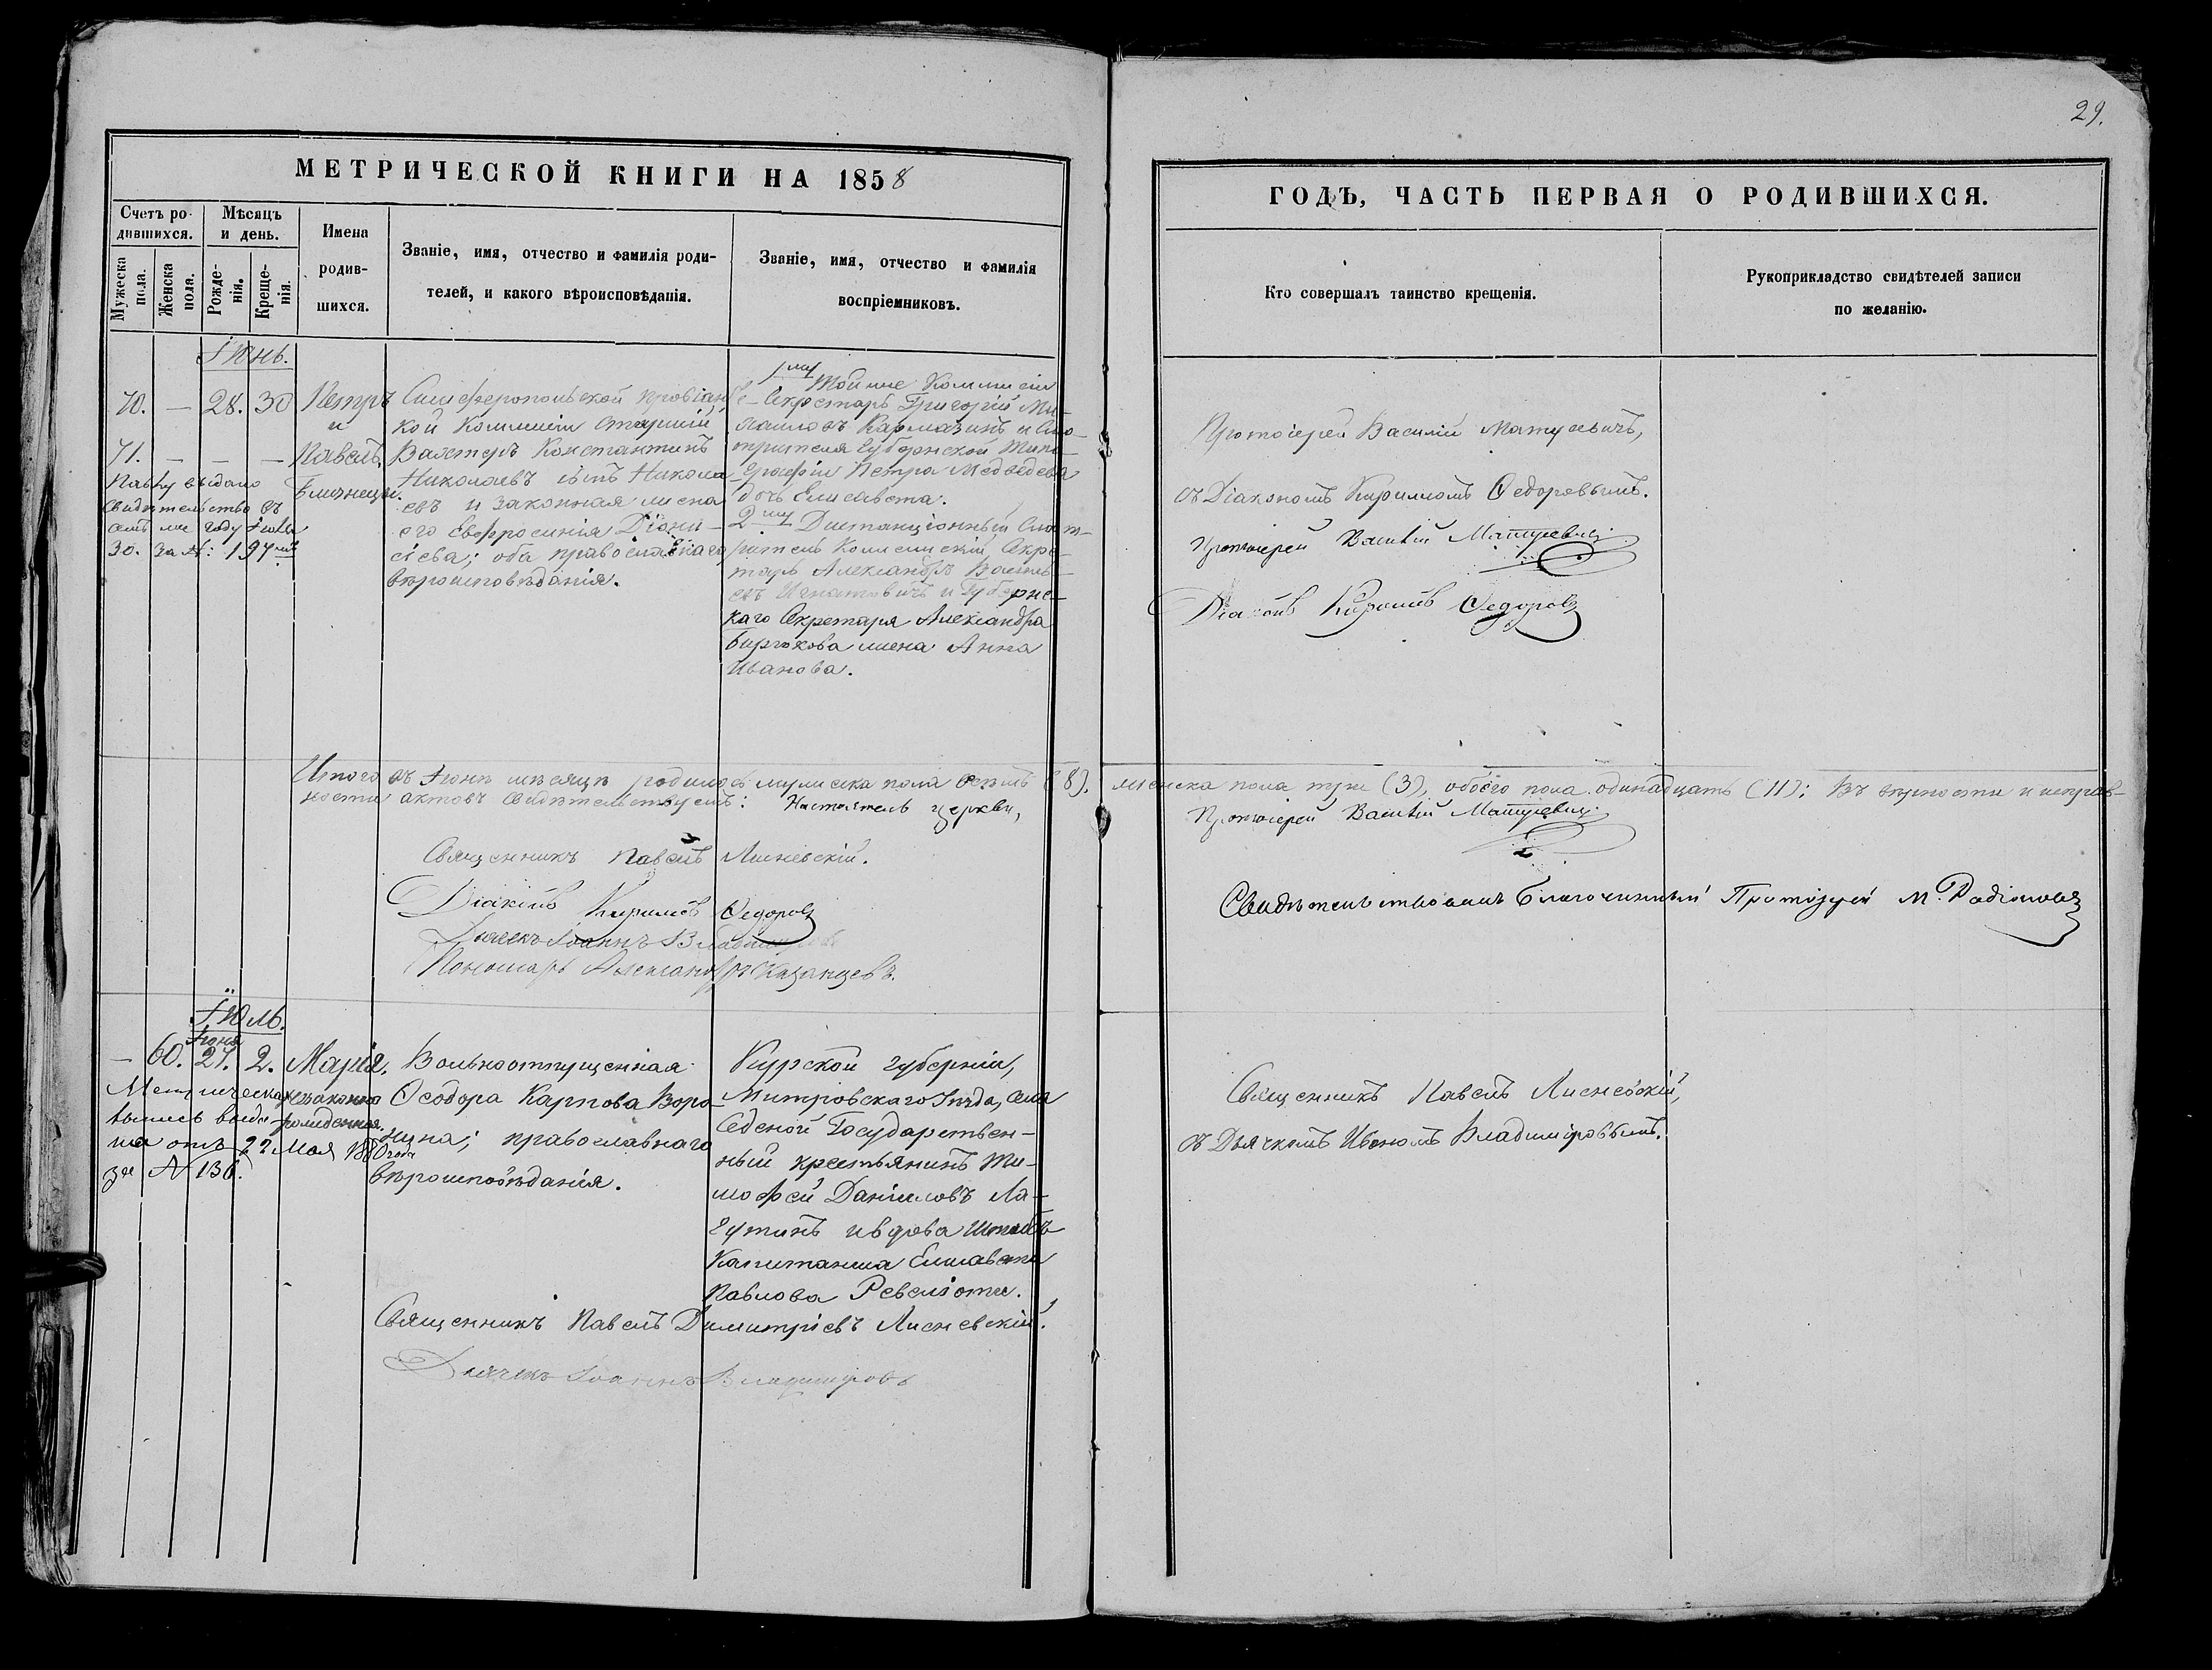 29.
МЕТРИЧЕСКОЙ КНИГИ НА 1858
ГОДЪ, ЧАСТЬ ПЕРВАЯ О РОДИВШИХСЯ.
Счетъ ро-
дившихся.
Мужеска
пола.
Женска
пола.
Мѣсяцъ
и день.
Рожде-
нія.
Креще-
нія.
Имена
родив-
шихся.
Званіе, имя, отчество и фамилія роди-
телей, и какого вѣроисповѣданія.
Званіе, имя, отчество и фамилія
воспріемниковъ.
Кто совершалъ таинство крещенія.
Рукоприкладство свидѣтелей записи
по желанію.
Іюнь.
70. — 28. 30
71. — — —
Павлу выдано
свидѣтельство въ
семъ же году Іюля
30. за №: 197мъ
Петръ
и
Павелъ,
близнецы.
Симферопольской провіан
кой Коммисіи старшій
Вахтеръ Константинъ
Николаевъ сынъ Никола
евъ и законная жена
его Евфросинія Діони-
сіева; оба православнаго
вѣроисповѣданія.
1му Тойже Коммисіи
Секретарь Григорій Ми-
хайловъ Кармазинъ и Смо-
трителя Губернской Типо-
графіи Петра Медведева
дочь Елисавета.
2му Дистанціонный Смот-
ритель Комисскій Секре-
тарь Александръ Василь-
евъ Игнатовичъ и Губернс-
каго Секретаря Александра
Бирюкова жена Анна
Иванова.
Протоіерей Василій Матусевичъ,
съ Діакономъ Кириломъ Ѳедоровымъ.
Протоіерей Василій Матусевичъ
Діаконъ Кирилъ Ѳедоровъ
Итого въ Іюнѣ мѣсяцѣ родилось мужеска пола осемь (8), женска пола три (3), обоего пола одинадцать (11); Въ вѣрности и исправ-
ности актовъ свидѣтельствуемъ: Настоятель церкви, Протоіерей Василій Матусевичъ
Священникъ Павелъ Лисневскій.
Діаконъ Кирилъ Ѳедоровъ
Дьячекъ Іоаннъ Владиміровъ
Пономарь Александръ Казанцевъ.
Свидѣтельствовалъ Благочинный Протоіерей М. Родіоновъ
Іюль.
Іюня
— 60. 27. 2.
Метрическая
выпись выда-
на отъ 22 Мая 1880 года
за № 136.
Марія,
незаконно
рожденная.
Вольноотпущенная
Ѳеодора Карпова Воро-
нина; православнаго
вѣроисповѣданія.
Курской губерніи,
Дмитровскаго Уѣзда, села
Государствен-
ный крестьянинъ Ти-
мофей Даниловъ Ла-
гутинъ и вдова Штабсъ
Капитанша Елисавета
Павлова Ревеліоти.
Священникъ Павелъ Лисневскій,
съ Дьячкомъ Иваномъ Владиміровымъ.
Священникъ Павелъ Димитріевъ Лисневскій.
Дьячекъ Іоаннъ Владиміровъ